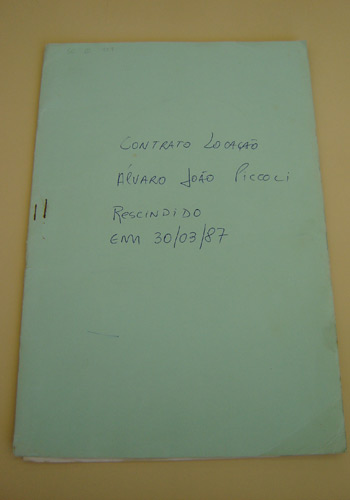 CONTRATO LOCAÇÃO
ÁLVARO JOÃO PICCOLI
RESCINDIDO
EM 30/03/87